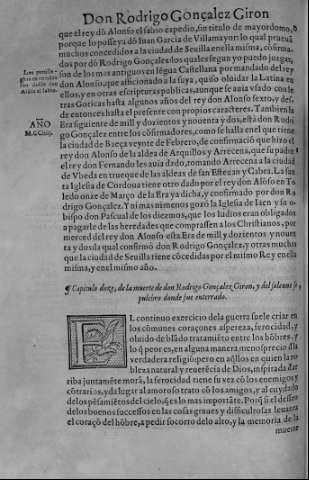 Don Rodrigo Gonçalez Giron
que el rey dõ Alonso el sabio expedio, sin titulo de mayordomo, o
porque lo posseya dõ Iuan Garcia de Villamayor: lo qual prueuã
muchos concedidos a la ciudad de Seuilla enella misma, cõfirma-
dos por dõ Rodrigo Gonçalez: los quales segun yo puedo juzgar,
son de los mas antiguos en lẽgua Castellana por mandado del rey
don Alonso, que afficionado a la suya, quiso oluidar la Latina en
ellos, y en otras escripturas publicas, aunque se auia vsado con le
tras Goticas hasta algunos años del rey don Alonso sexto, y des-
de entonces hasta el presente con propios caracteres. Tambien la
Era siguiente de mill y dozientos y nouenta y dos, està don Rodri
go Gonçalez entre los cõfirmadores, como se halla en el que tiene
la ciudad de Baeça veynte de Febrero, de confirmaciõ que hizo el
rey don Alonso de la aldea de Arquillos y Arrecena, que su padre
el rey don Fernando les auia dado, tomando Arrecena a la ciudad
de Vbeda en trueque de las aldeas de san Esteuan y Cabra. La san
ta Iglesia de Cordoua tiene otro dado por el rey don Alõso en To
ledo onze de Março de la Era ya dicha, y confirmado por don Ro
drigo Gonçalez. Y ni mas ni menos gozò la Iglesia de Iaen y su o-
bispo don Pascual de los diezmos, que los Iudios eran obligados
a pagarle de las heredades que comprassen a los Christianos, por
merced del rey don Alonso esta Era de mill y dozientos y nouen
ta y dos: la qual confirmò don Rodrigo Gonçalez, y otras muchas
que la ciudad de Seuilla tiene cõcedidas por el mismo Rey en ella
misma, y enel mismo año.
AÑO
¶ Capitulo doze, de la muerte de don Rodrigo Gonçalez Giron, y del solenne se
pulcro donde fue enterrado.
EL continuo exercicio de la guerra suele criar en
los comunes coraçones aspereza, ferocidad, y
oluido de blãdo tratamiẽto entre los hõbres, y
lo q̃ peor es, en alguna manera menosprecio dla
verdadera religiõ: pero en aq̃llos en quien la no
bleza natural y reuerẽcia de Dios, inspirada d'ar
riba juntamẽte morã, la ferocidad tiene su vez cõ los enemigos y
cõtrarios, y da lugar al amoroso trato cõ los amigos, y al cuydado
de los pẽsamiẽtos del cielo, q̃ es lo mas importãte. Porq̃ si el desseo
de los buenos successos en las cosas graues y difficultosas leuanta
el coraçõ del hõbre, a pedir socorro de lo alto, y la memoria de la
muerte